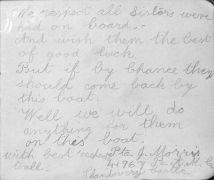 We respect all Sisters were
had on board.-
And wish them the best
of good luck.
But if by chance they
should come back by
this boat.
Well we will do
anything for them
on this boat.
with best Pte. J. Morris